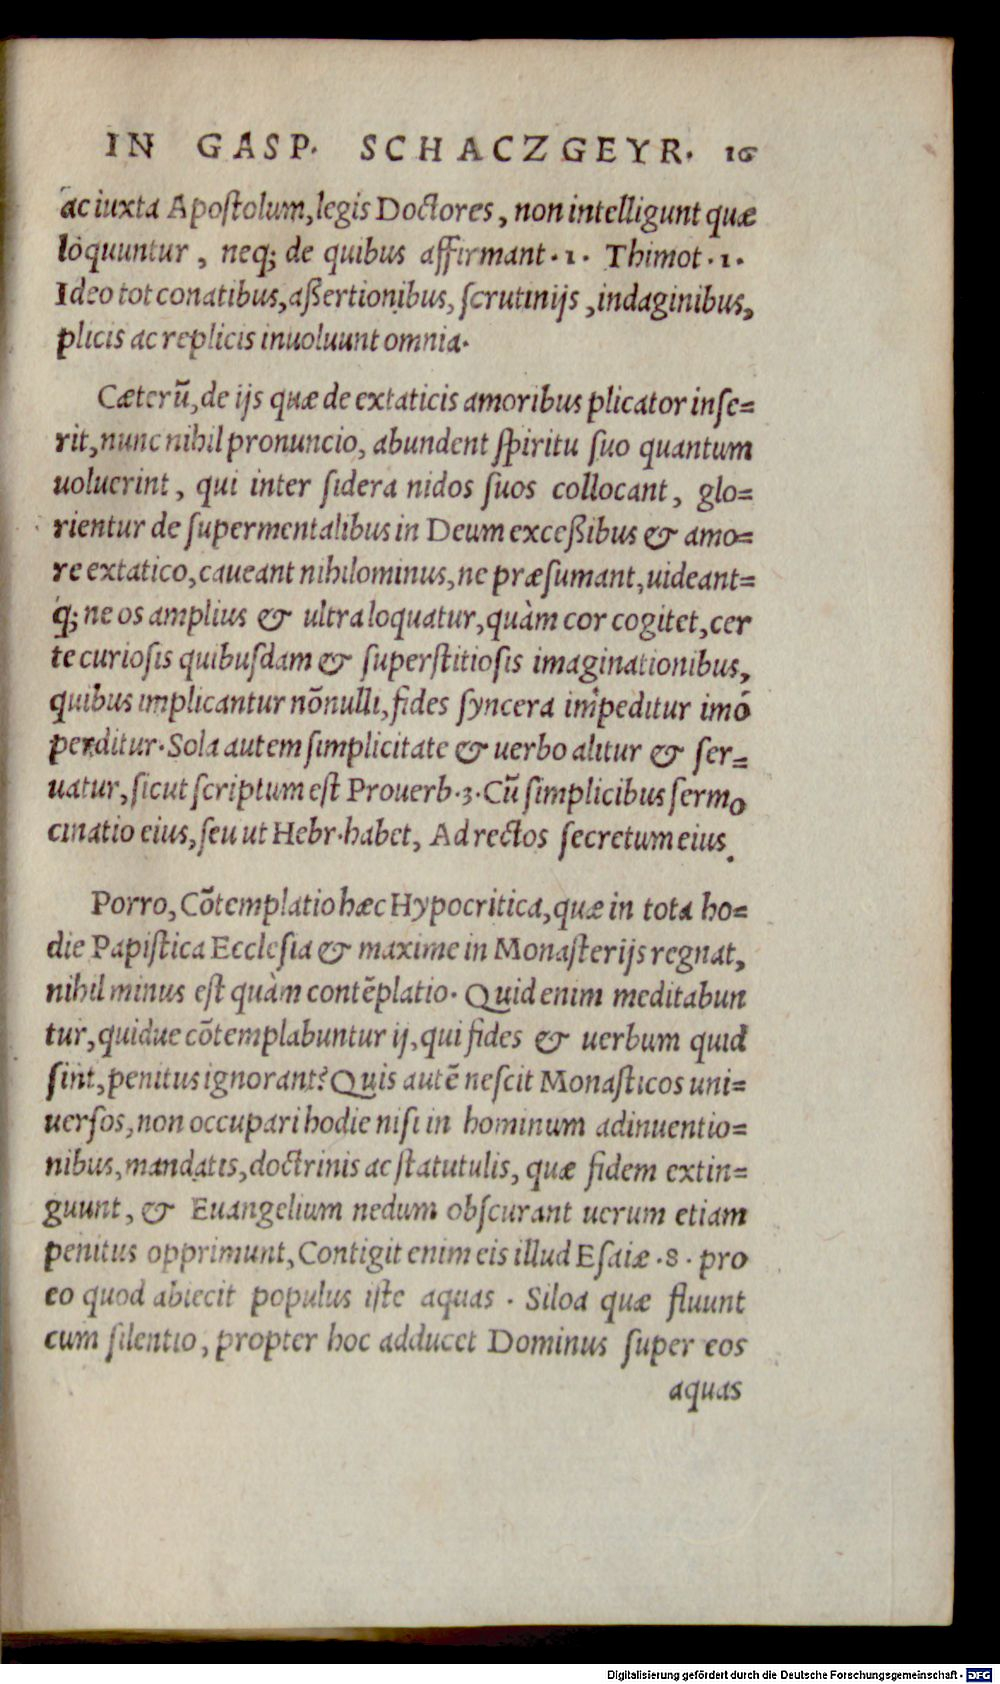 IN GASP. SCHACZGEYR. 16
ac iuxta Apostolum, legis Doctores, non intelligunt quæ
loquuntur, neq; de quibus affirmant. 1. Thimot. 1.
Ideo tot conatibus, aßertionibus, scrutinijs, indaginibus,
plicis ac replicis inuoluunt omnia.
Cæterũ, de ijs quæ de extaticis amoribus plicator inse=
rit, nunc nihil pronuncio, abundent spiritu suo quantum
uoluerint, qui inter sidera nidos suos collocant, glo=
rientur de supermentalibus in Deum exceßibus & amo=
re extatico, caueant nihilominus, ne præsumant, uideant=
q́; ne os amplius & ultra loquatur, quàm cor cogitet, cer
te curiosis quibusdam & superstitiosis imaginationibus,
quibus implicantur nõnulli, fides syncera impeditur imó
perditur. Sola autem simplicitate & uerbo alitur & ser=
uatur, sicut scriptum est Prouerb. 3. Cũ simplicibus sermo
cinatio eius, seu ut Hebr. habet, Ad rectos secretum eius.
Porro, Cõtemplatio hæc Hypocritica, quæ in tota ho=
die Papistica Ecclesia & maxime in Monasterijs regnat,
nihil minus est quàm contẽplatio. Quid enim meditabun
tur, quidue cõtemplabuntur ij, qui fides & uerbum quid
sint, penitus ignorant? Quis autẽ nescit Monasticos uni=
uersos, non occupari hodie nisi in hominum adinuentio=
nibus, mandatis, doctrinis ac statutulis, quæ fidem extin=
guunt, & Euangelium nedum obscurant uerum etiam
penitus opprimunt, Contigit enim eis illud Esaiæ. 8. pro
eo quod abiecit populus iste aquas. Siloa quæ fluunt
cum silentio, propter hoc adducet Dominus super eos
aquas
Digitalisierung gefördert durch die Deutsche Forschungsgemeinschaft - DFG